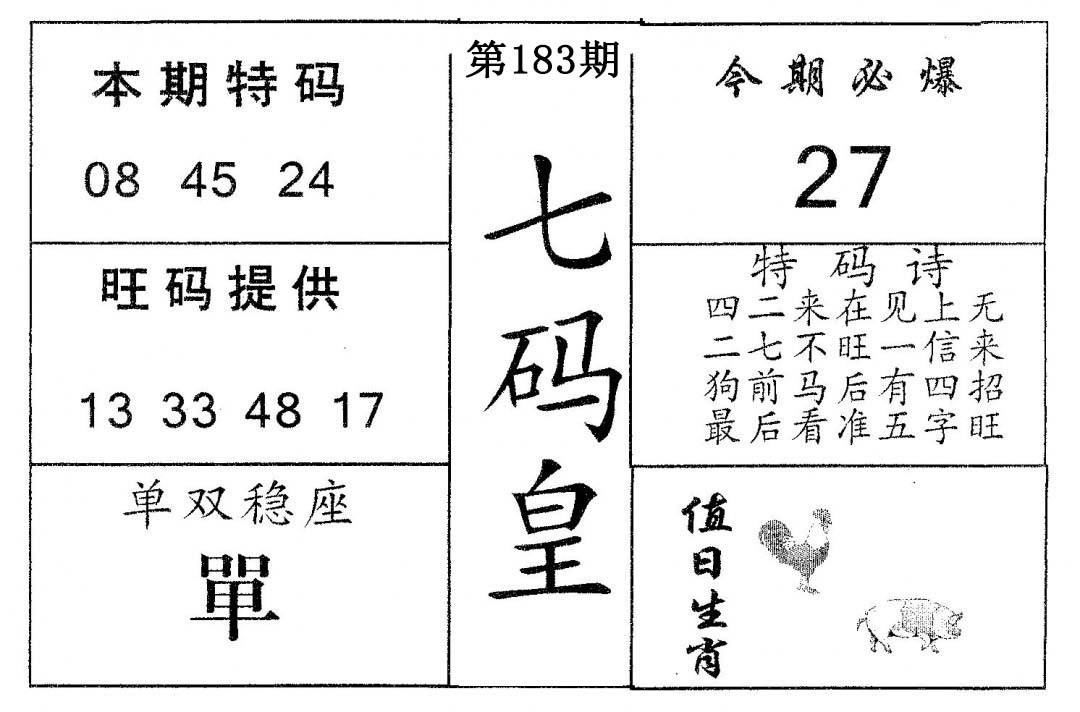 第183期
七码皇
本期特码
08 45 24
旺码提供
13 33 48 17
单双稳座
單
今期必爆
27
特码诗
四二来在见上无
二七不旺一信来
狗前马后有四招
最后看准五字旺
值日生肖